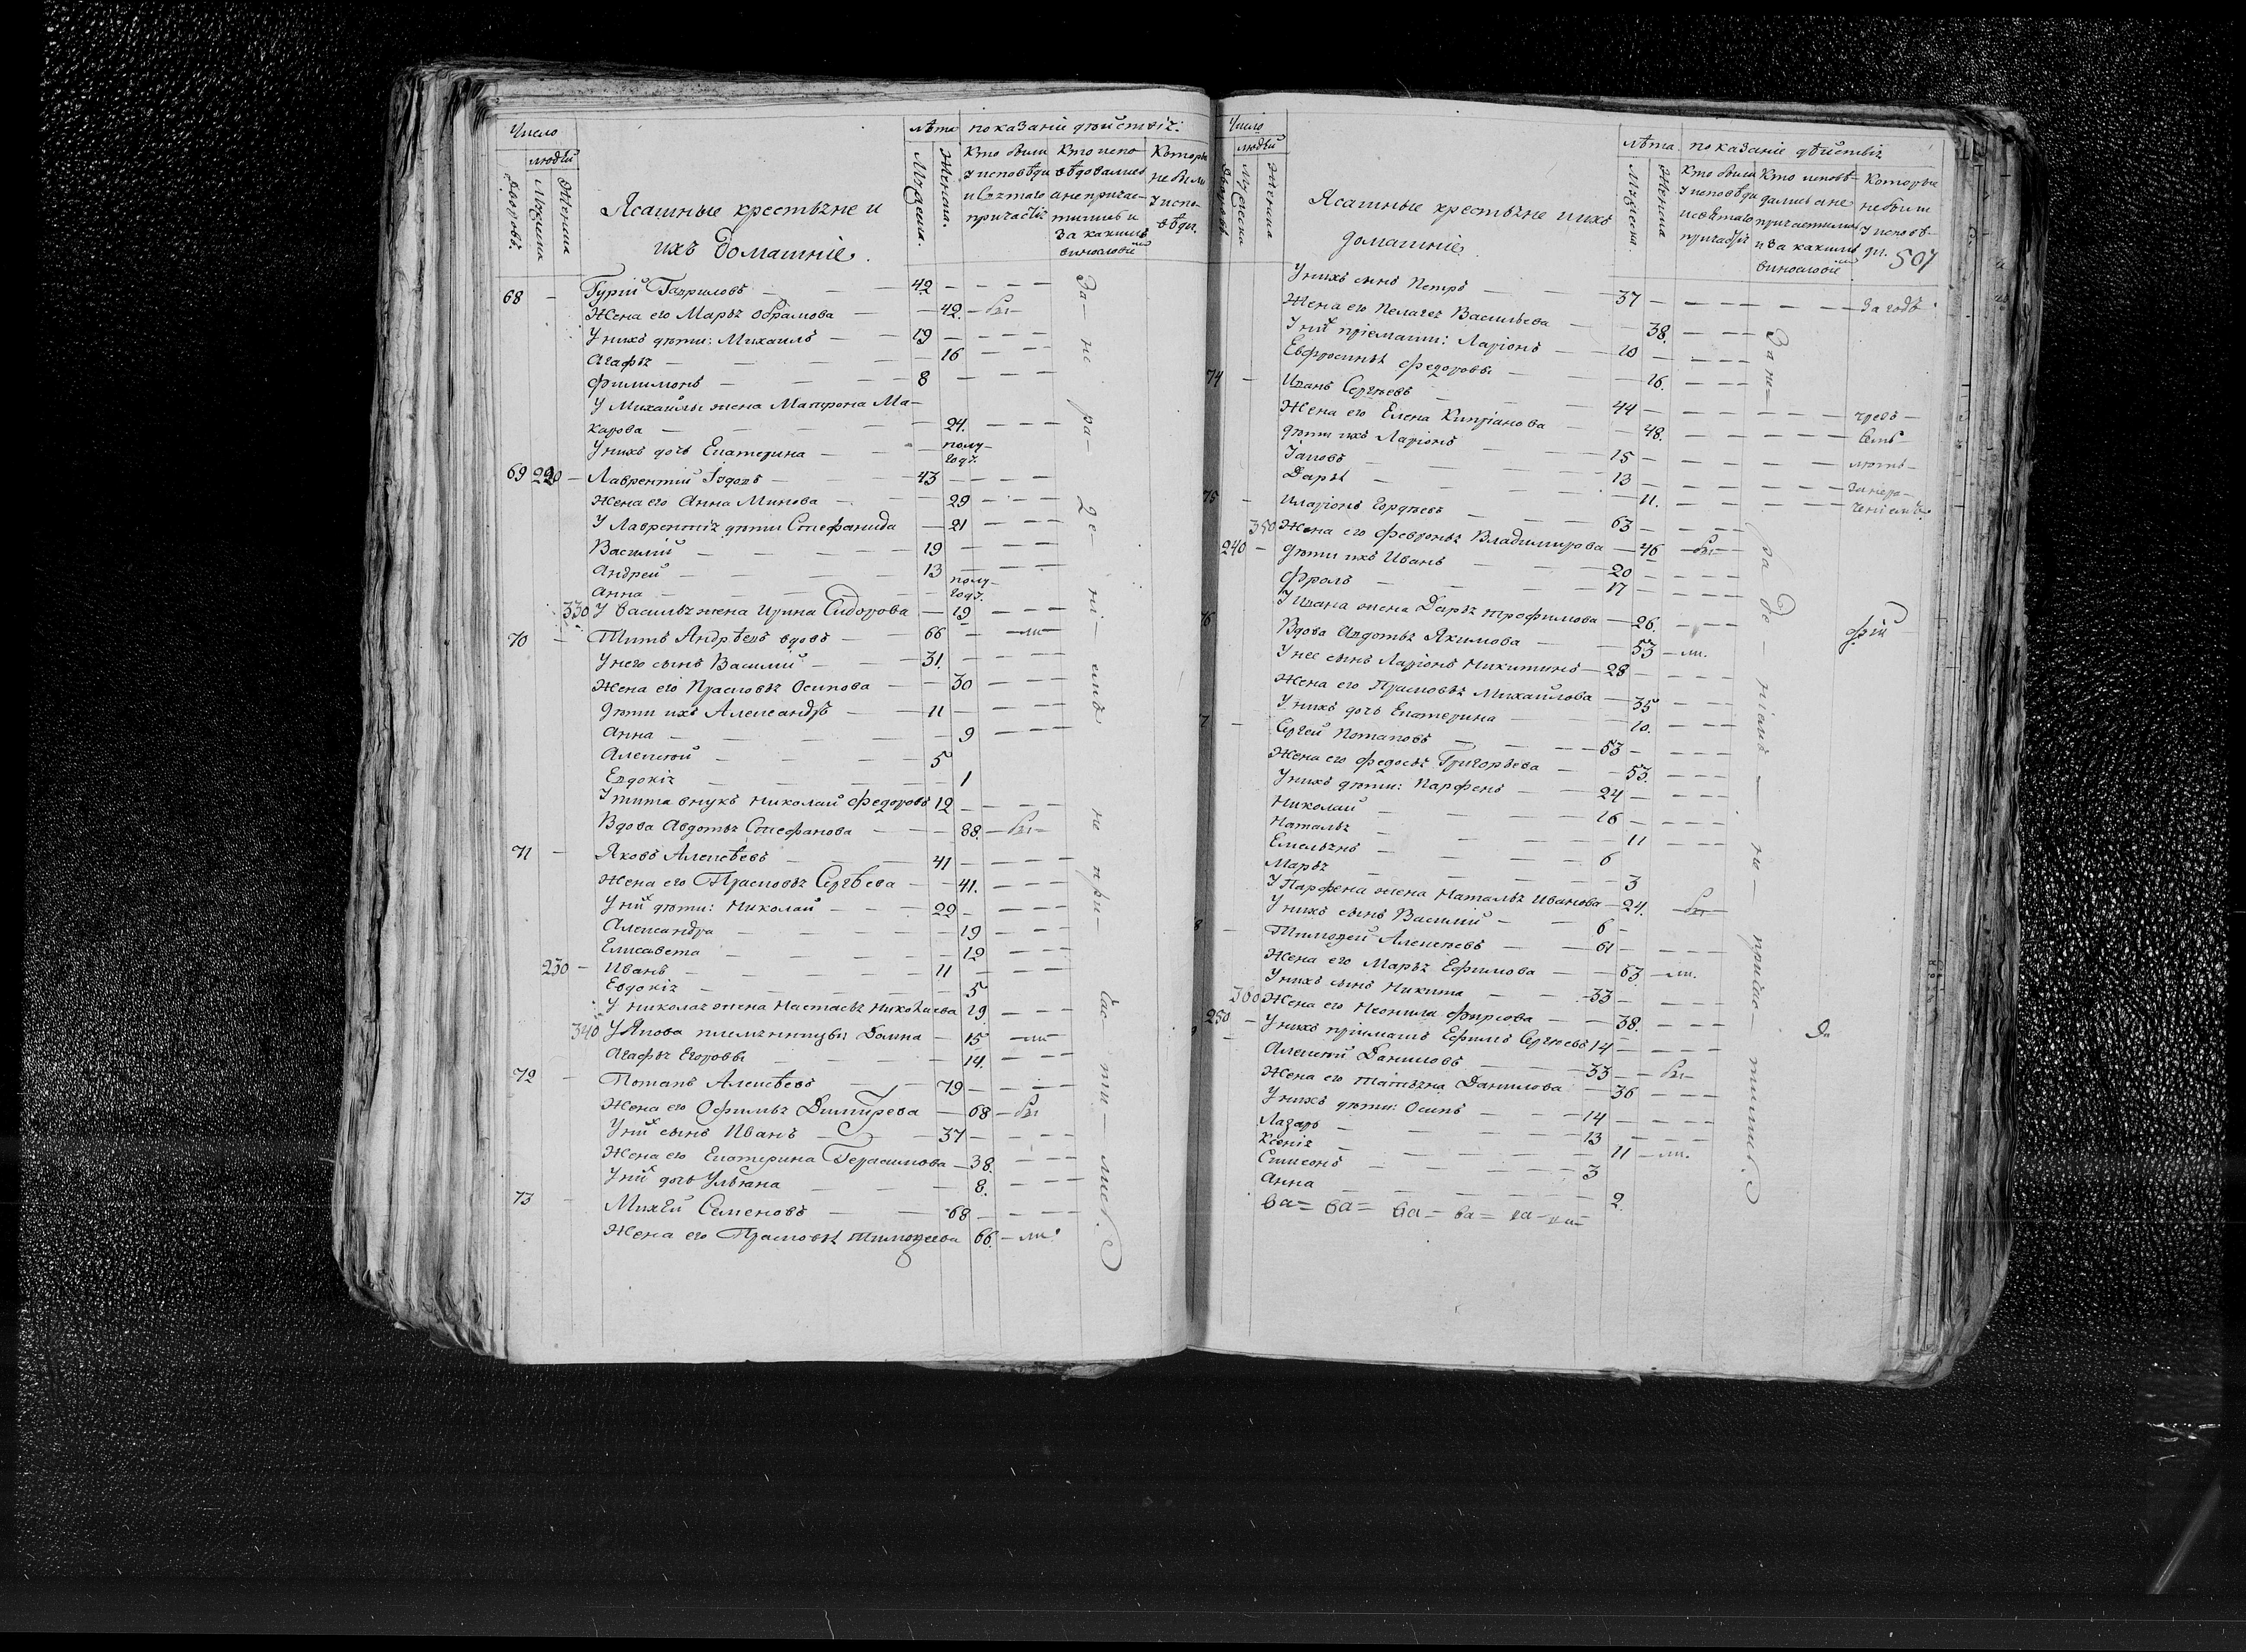 Число
людей
дворовъ.
Мужеска
Женска
Ясашные крестьяне и
ихъ домашніе.
лѣта
Мужеска.
Женска.
показаніе дѣйствія.
Кто были
у исповѣди
и Святаго
причастія
Кто испо
вѣдовались
а не причас-
тились и
за какимъ
винословіемъ
Которые
не были
у испо-
вѣди.
68 — Гурій Гавриловъ — 42 — — — —
Жена его Марья Абрамова — 42. — бы —
У нихъ дѣти: Михаилъ — 19 — — — —
Агафья — 16 — — —
Филимонъ — 8 — — — —
У Михайлы жена Матрона Ма-
карова — 24. — — —
У нихъ дочь Екатерина — полу-
году.
69 220 — Лаврентій — 43 — — — —
Жена его Анна Минова — 29 — — —
У Лаврентія дѣти Стефанида — 21 — — —
Василій — 19 — — — —
Андрей — 13 — — — —
Анна — полу-
году.
330 У Василья жена Ирина Сидорова — 19 — — —
70 — Титъ Андрѣевъ вдовъ — 66 — — ли —
У него сынъ Василий — 31. — — — —
Жена его Прасковья Осипова — 30 — — —
дѣти ихъ Александръ — 11 — — — —
Анна — 9 — — —
Алексѣй — 5
Евдокія — 1
У Тита внукъ Николай Федоровъ 12 — — — —
Вдова Авдотья Стефанова — 88. — бы —
71 — Яковъ Алексѣевъ — 41 — — — —
Жена его Прасковья Сергѣева — 41. — — —
У них дѣти: Николай — 22 — — — —
Александра — 19 — — —
Елисавета — 12 — — —
230 — Иванъ — 11 — — — —
Евдокія — 5
У Николая жена Настасья 19 — — —
340 У Якова племянницы Домна — 15 — ли —
Агафья Егоровы — 14. — — —
72 — Потапъ Алексѣевъ — 79 — — — —
Жена его Офимья Димитрева — 68 — бы
У них сынъ Иванъ — 37 — — — —
Жена его Екатерина Герасимова — 38. — — —
У них дочь Ульяна — 8. — — —
73 — Михѣй Семеновъ — 68 — — — —
Жена его Прасковья Тимофеева 66. — ли.
За — не ра — де — ні — емъ не при — час — ти — лис.
Число
людей
дворовъ
Мужеска
Женска
Ясашные крестьяне и ихъ
домашніе.
лѣта
Мужеска.
Женска
показаніе дѣйствія
Кто были
у исповѣди
и святаго
причастія
Кто исповѣ-
дались а не
причастились
и за какимъ
винословіемъ
Которые
не были
у исповѣ-
ди.
507
У нихъ сынъ Петръ — 37 — — — — — За годъ
Жена его Пелагея Васильева — 38. — — —
У них пріемыши: Ларіонъ — 10 — — — —
Евфросинья Федоровы — 16. — — —
74 — Иванъ Сергѣевъ — 44 — — — —
Жена его Елена Кипріанова — 48. — — —
дѣти ихъ Ларіонъ — 15 — — — —
Іаковъ — 13 — — — —
Дарья — 11. — — —
75 — Иларіонъ — 63 — — — —
350 Жена его Февронья Владимирова — 46 — бы —
240 — дѣти ихъ Иванъ — 20 — — — —
Фролъ — 17 — — — —
У Ивана жена Дарья Трофимова — 26. — — —
76 Вдова Авдотья Якимова — 53 — ли.
У нее сынъ Ларіонъ Никитинъ — 28 — — — —
Жена его Прасковья Михайлова — 35 — — —
У нихъ дочь Екатерина — 10.
7 — Сергей Потаповъ — 53 — — — —
Жена его Федосья Григорьева — 53. — — —
У нихъ дѣти: Парфенъ — 24 — — — —
Николай — 16 — — — —
Наталья — 11 — — —
Емельянъ — 6
Марья — 3
У Парфена жена Наталья Иванова — 24. — бы —
У нихъ сынъ Василий — 6 —
8 — Тимофей Алексѣевъ — 61 — — — —
Жена его Марья Ефимова — 63 — ли.
У нихъ сынъ Никита — 33 — — — —
360 Жена его Неонила Фирсова — 38. — — —
250 — У нихъ пріимышъ Ефимъ Сергѣевъ 14 — — — —
9 — Алексѣй Даниловъ — 33 — — бы —
Жена его Татьяна Данилова — 36 — — —
У нихъ дѣти: Осипъ — 14 — — — —
Лазарь — 13 — — — —
Ксенія — 11 — ли.
Симеонъ — 3
Анна — 2.
За не — ра де — ніемъ — не — причас тились.